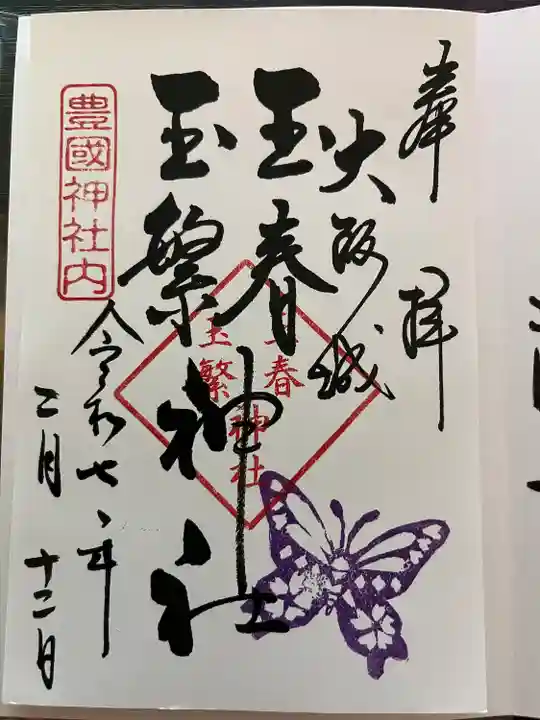 奉拝
大阪城
玉春
玉繁神社
玉春
玉繁神社
豊國神社内
令和七年
二月十二日